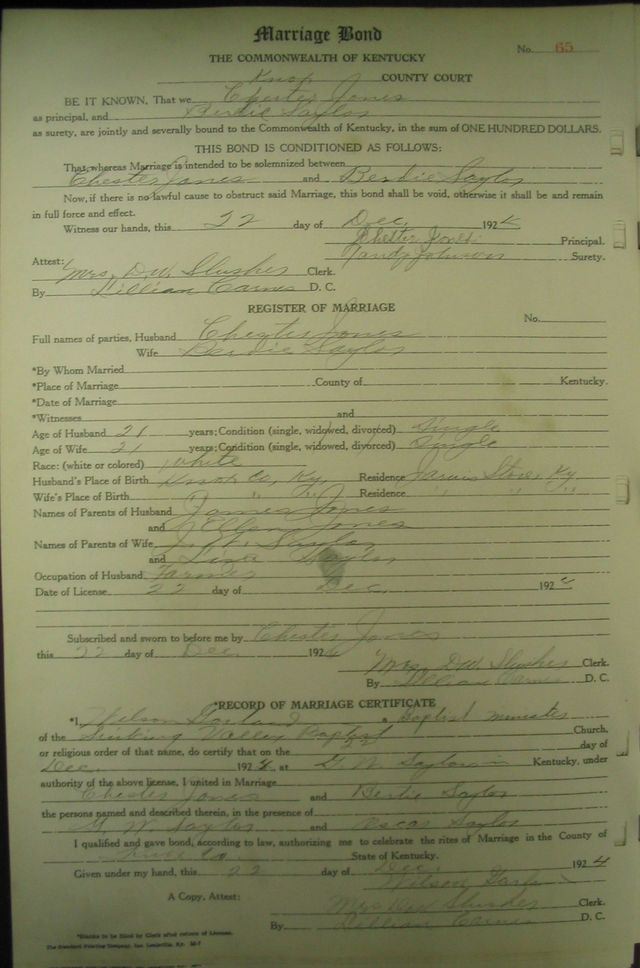 Marriage Bond
No. 65
THE COMMONWEALTH OF KENTUCKY
Knox COUNTY COURT
BE IT KNOWN, That we Chester Jones
as principal, and Berdie Saylor
as surety, are jointly and severally bound to the Commonwealth of Kentucky, in the sum of ONE HUNDRED DOLLARS.
THIS BOND IS CONDITIONED AS FOLLOWS:
That, whereas Marriage is intended to be solemnized between
Chester Jones and Berdie Saylor
Now, if there is no lawful cause to obstruct said Marriage, this bond shall be void, otherwise it shall be and remain
in full force and effect.
Witness our hands, this 22 day of Dec. 1924
Chester Jones. Principal.
Johnson Surety.
Attest:
Mrs. D.W. Slusher Clerk.
By Lillian Carnes D. C.
REGISTER OF MARRIAGE
No.
Full names of parties, Husband Chester Jones
Wife Berdie Saylor
*By Whom Married
*Place of Marriage County of Kentucky.
*Date of Marriage
*Witnesses and
Age of Husband 21 years; Condition (single, widowed, divorced) Single
Age of Wife 21 years; Condition (single, widowed, divorced) Single
Race: (white or colored) white
Husband's Place of Birth Knox Co, Ky. Residence Jarvis Store, Ky
Wife's Place of Birth " " Residence " " "
Names of Parents of Husband James Jones
and Ellen Jones
Names of Parents of Wife Saylor
and Liza Saylor
Occupation of Husband Farmer
Date of License 22 day of Dec. 1924
Subscribed and sworn to before me by Chester Jones
this 22 day of Dec. 1924
Mrs. D.W. Slusher Clerk.
By Lillian Carnes D. C.
*RECORD OF MARRIAGE CERTIFICATE
*I, Wilson Garland a Baptist minister
of the Sinking Valley Baptist Church,
or religious order of that name, do certify that on the 22 day of
Dec. 1924, at G. W. Saylors in Kentucky, under
authority of the above license, I united in Marriage
Chester Jones and Berdie Saylor
the persons named and described therein, in the presence of
G. W. Saylor and Oscar Saylor
I qualified and gave bond, according to law, authorizing me to celebrate the rites of Marriage in the County of
Co. State of Kentucky.
Given under my hand, this 22 day of Dec. 1924
Wilson
A Copy, Attest: Mrs D.W. Slusher Clerk.
By Lillian Carnes D. C.
*Blanks to be filled by Clerk after return of License.
The Standard Printing Company, Inc. Louisville, Ky.